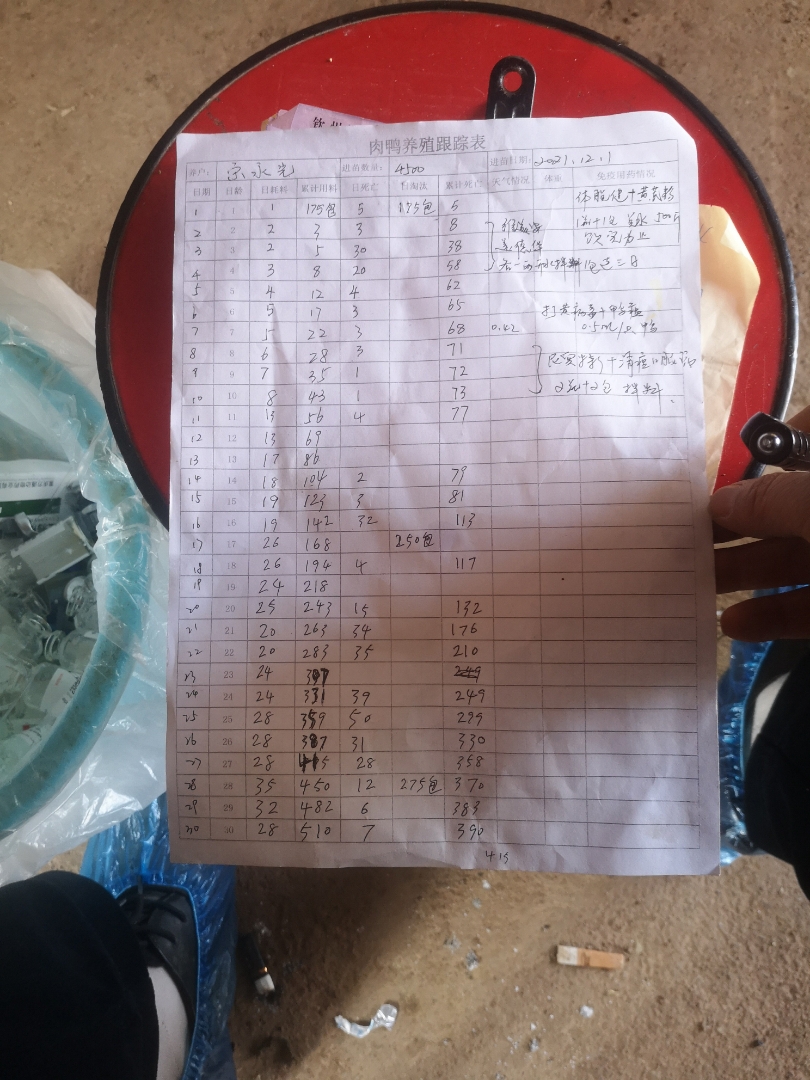 肉鸭养殖跟踪表
养户: 宗永光 进苗数量: 4500 进苗日期: 2021.12.1
日期 日龄 日耗料 累计用料 日死亡 日淘汰 累计死亡 天气情况 体重 免疫用药情况
1 1 1 175包 5 175包 5
2 2 2 3 3 8
3 3 2 5 30 38
4 4 3 8 20 58
5 5 4 12 4 62
6 6 5 17 3 65
7 7 5 22 3 68 0.42 0.5ml/只 鸭
8 8 6 28 3 71
9 9 7 35 1 72
10 10 8 43 1 73 拌料
11 11 13 56 4 77
12 12 13 69
13 13 17 86
14 14 18 104 2 79
15 15 19 123 3 81
16 16 19 142 32 113
17 17 26 168 250包
18 18 26 194 4 117
19 19 24 218
20 20 25 243 15 132
21 21 20 263 34 176
22 22 20 283 35 210
23 23 24 307 249
24 24 24 331 39 249
25 25 28 359 50 299
26 26 28 387 31 330
27 27 28 415 28 358
28 28 35 450 12 275包 370
29 29 32 482 6 383
30 30 28 510 7 390
415